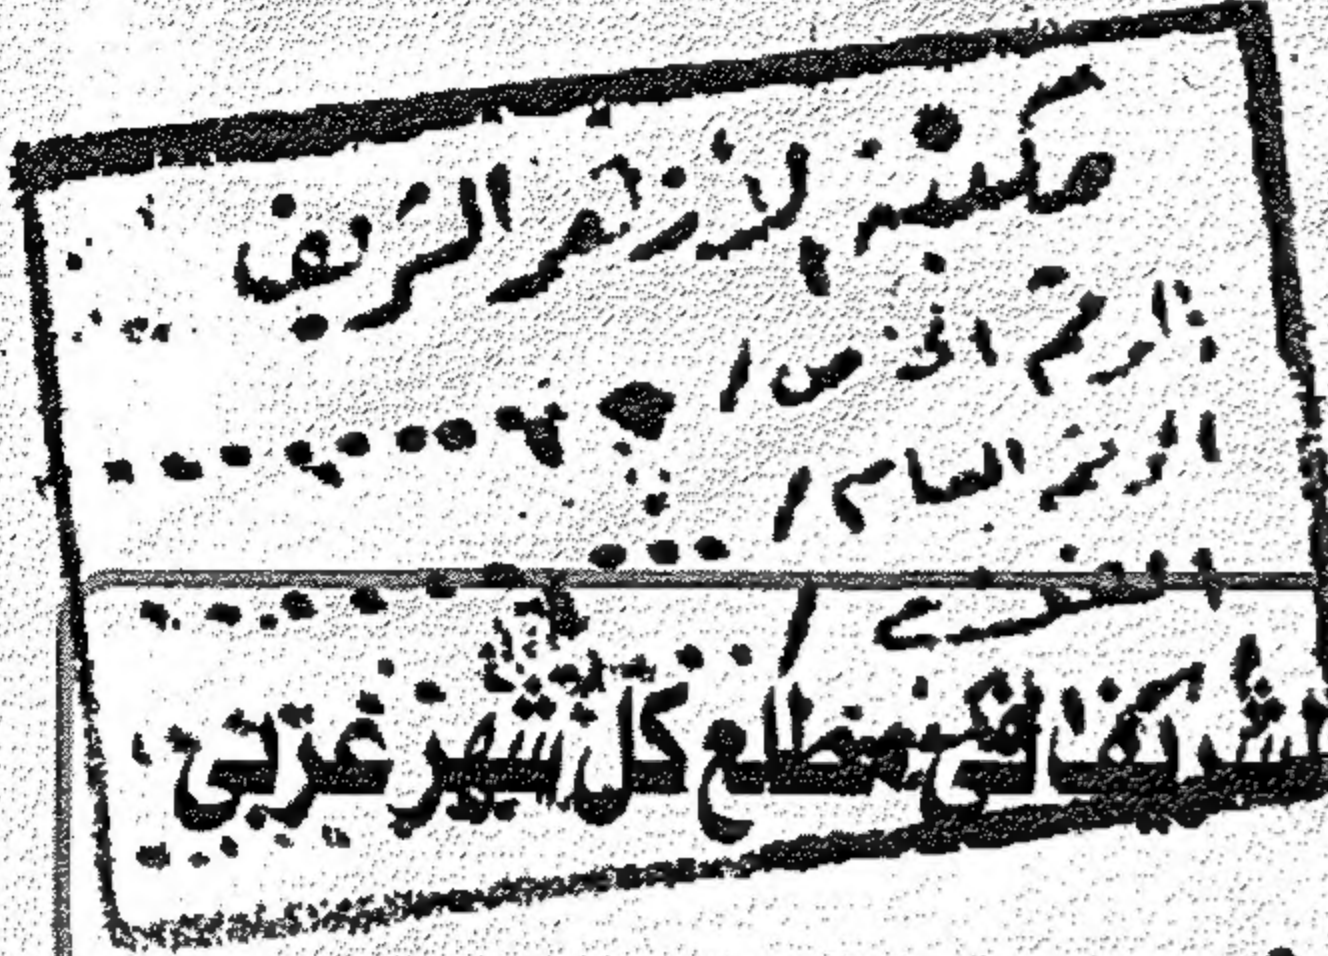 مكتبة الأزهر الشريف
الرقم الخاص /
الرقم العام /
الشريف في مطلع كل شهر عربي